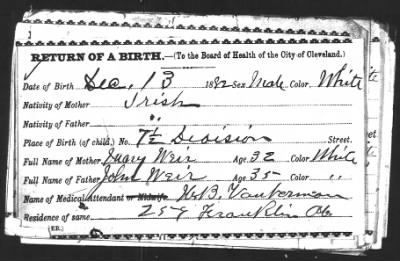 RETURN OF A BIRTH.—(To the Board of Health of the City of Cleveland.)
Date of Birth Dec. 13 1882 Sex Male Color White
Nativity of Mother Irish
Nativity of Father "
Place of Birth (of child,) No. 7½ Division Street.
Full Name of Mother Mary Weir Age 32 Color White
Full Name of Father John Weir Age 35 Color "
Name of Medical Attendant or Midwife. H.B. Van Norman
Residence of same 259 Franklin Av